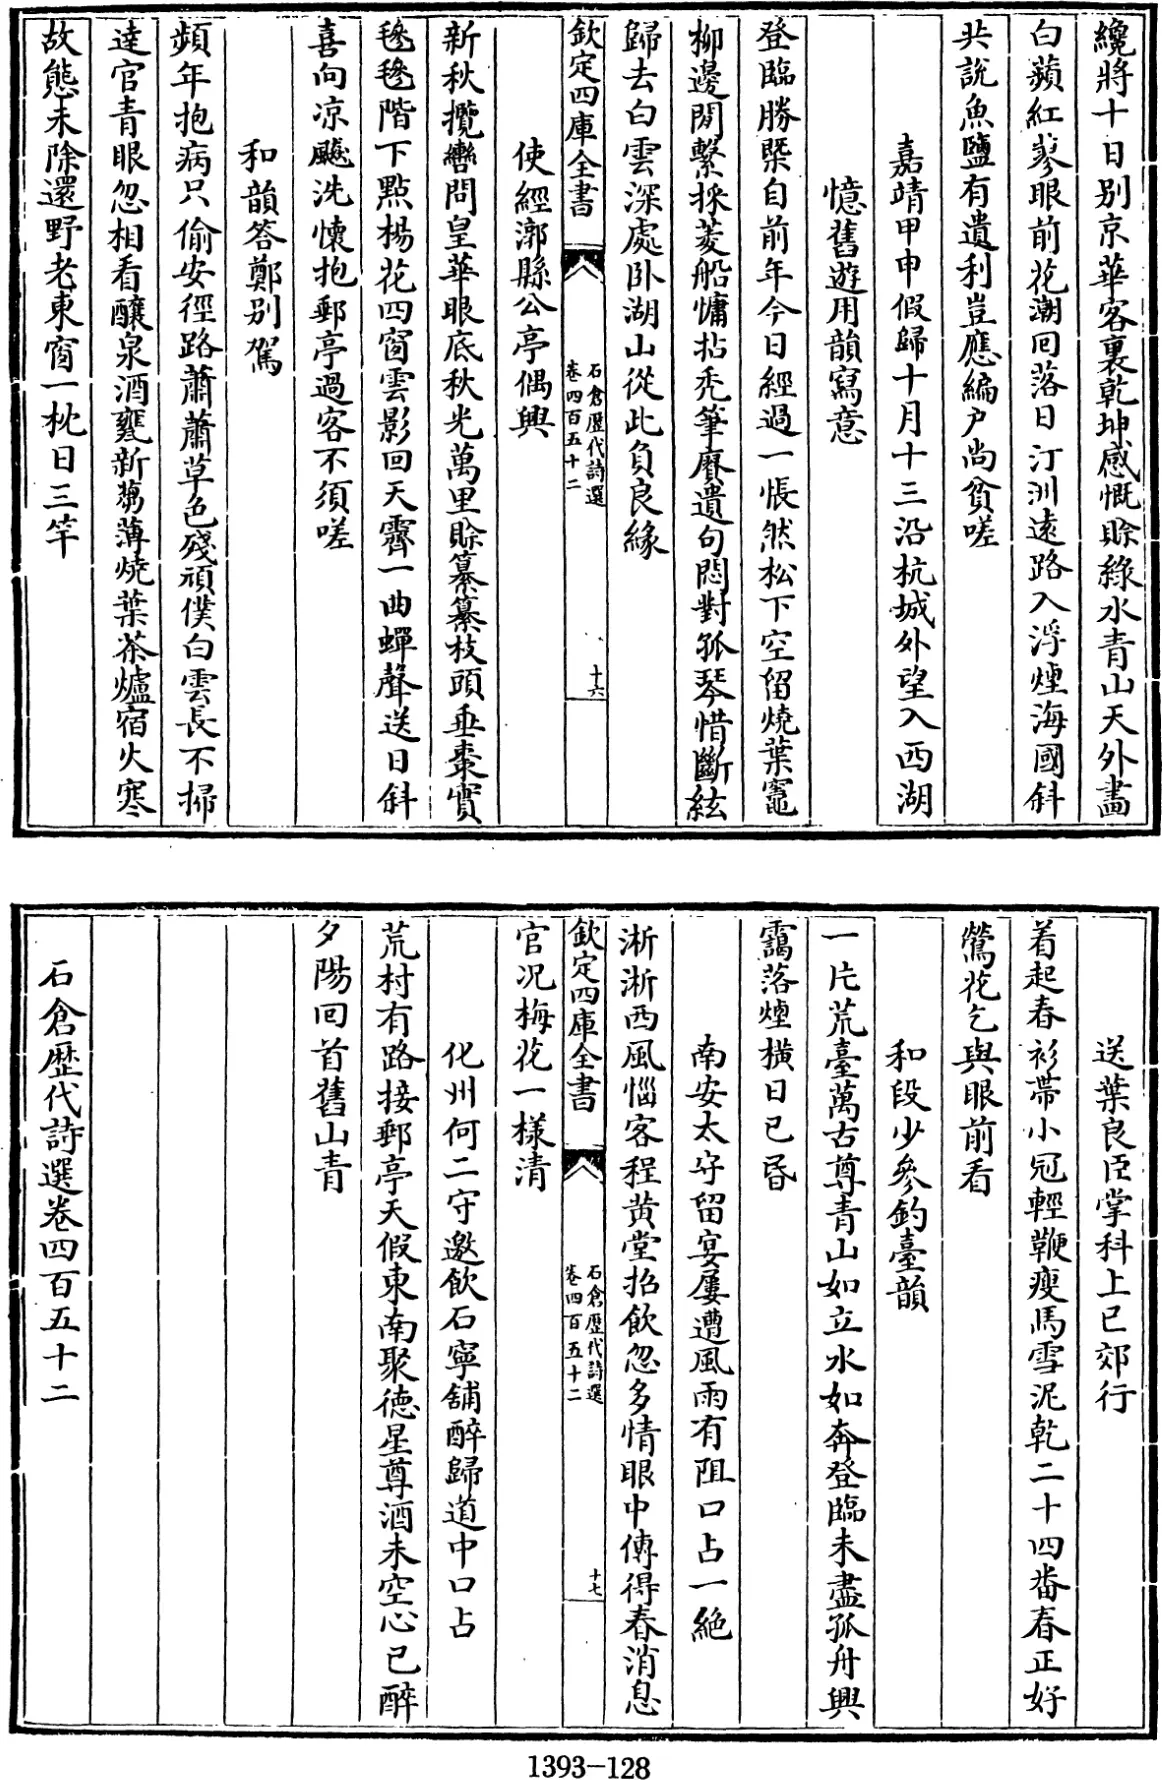 纔將十日別京華客裏乾坤感慨賖綠水青山天外畵
白蘋紅蓼眼前花潮回落日汀洲遠路入浮煙海國斜
共說魚鹽有遺利豈應編戶尚貧嗟
嘉靖甲申假歸十月十三沿杭城外望入西湖
憶舊遊用韻寫意
登臨勝槩自前年今日經過一悵然松下空留燒葉竈
柳邊閒繫採菱船慵拈禿筆賡遺句悶對孤琴惜斷絃
歸去白雲深處卧湖山從此負良緣
欽定四庫全書
石倉歷代詩選
卷四百五十二
十六
使經漷縣公亭偶興
新秋攬轡問皇華眼底秋光萬里賖纂纂枝頭垂棗實
毿毿階下點楊花四窗雲影回天霽一曲蟬聲送日斜
喜向凉颸洗懷抱郵亭過客不須嗟
和韻答鄭别駕
頻年抱病只偷安徑路蕭蕭草色殘頑僕白雲長不掃
達官青眼忽相看釀泉酒甕新篘薄燒葉茶爐宿火寒
故態未除還野老東窗一枕日三竿
送葉良臣掌科上巳郊行
着起春衫帶小冠輕鞭瘦馬雪泥乾二十四番春正好
鶯花乞與眼前看
和段少參釣臺韻
一片荒臺萬古尊青山如立水如奔登臨未盡孤舟興
靄落煙橫日已昏
南安太守留宴屢遭風雨有阻口占一絶
淅淅西風惱客程黄堂招飲忽多情眼中傳得春消息
欽定四庫全書
石倉歷代詩選
卷四百五十二
十七
官况梅花一樣清
化州何二守邀飲石寧舖醉歸道中口占
荒村有路接郵亭天假東南聚德星尊酒未空心已醉
夕陽回首舊山青
石倉歷代詩選卷四百五十二
1393-128